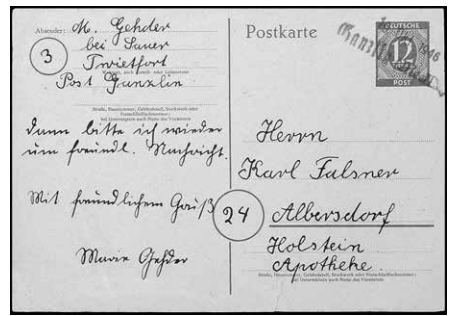 Absender: M. Gehder
bei Sauer
3
Twietfort
Post Ganzlin
Straße, Hausnummer, Gebäudeteil, Stockwerk oder
Postschließfachnummer;
bei Untermietern auch Name des Vermieters
dann bitte ich wieder
um freundl. Nachricht.
Mit freundlichem Gruß
Marie Gehder
Postkarte
DEUTSCHE
12
POST
1946
Herrn
Karl Falsner
24
Albersdorf
Holstein
Apotheke.
Straße, Hausnummer, Gebäudeteil, Stockwerk oder Postschließfachnummer;
bei Untermietern auch Name des Vermieters